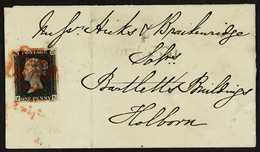 Messrs Hicks & Braikenridge
Solrs
Bartletts Buildings
Holborn
POSTAGE
ONE PENNY